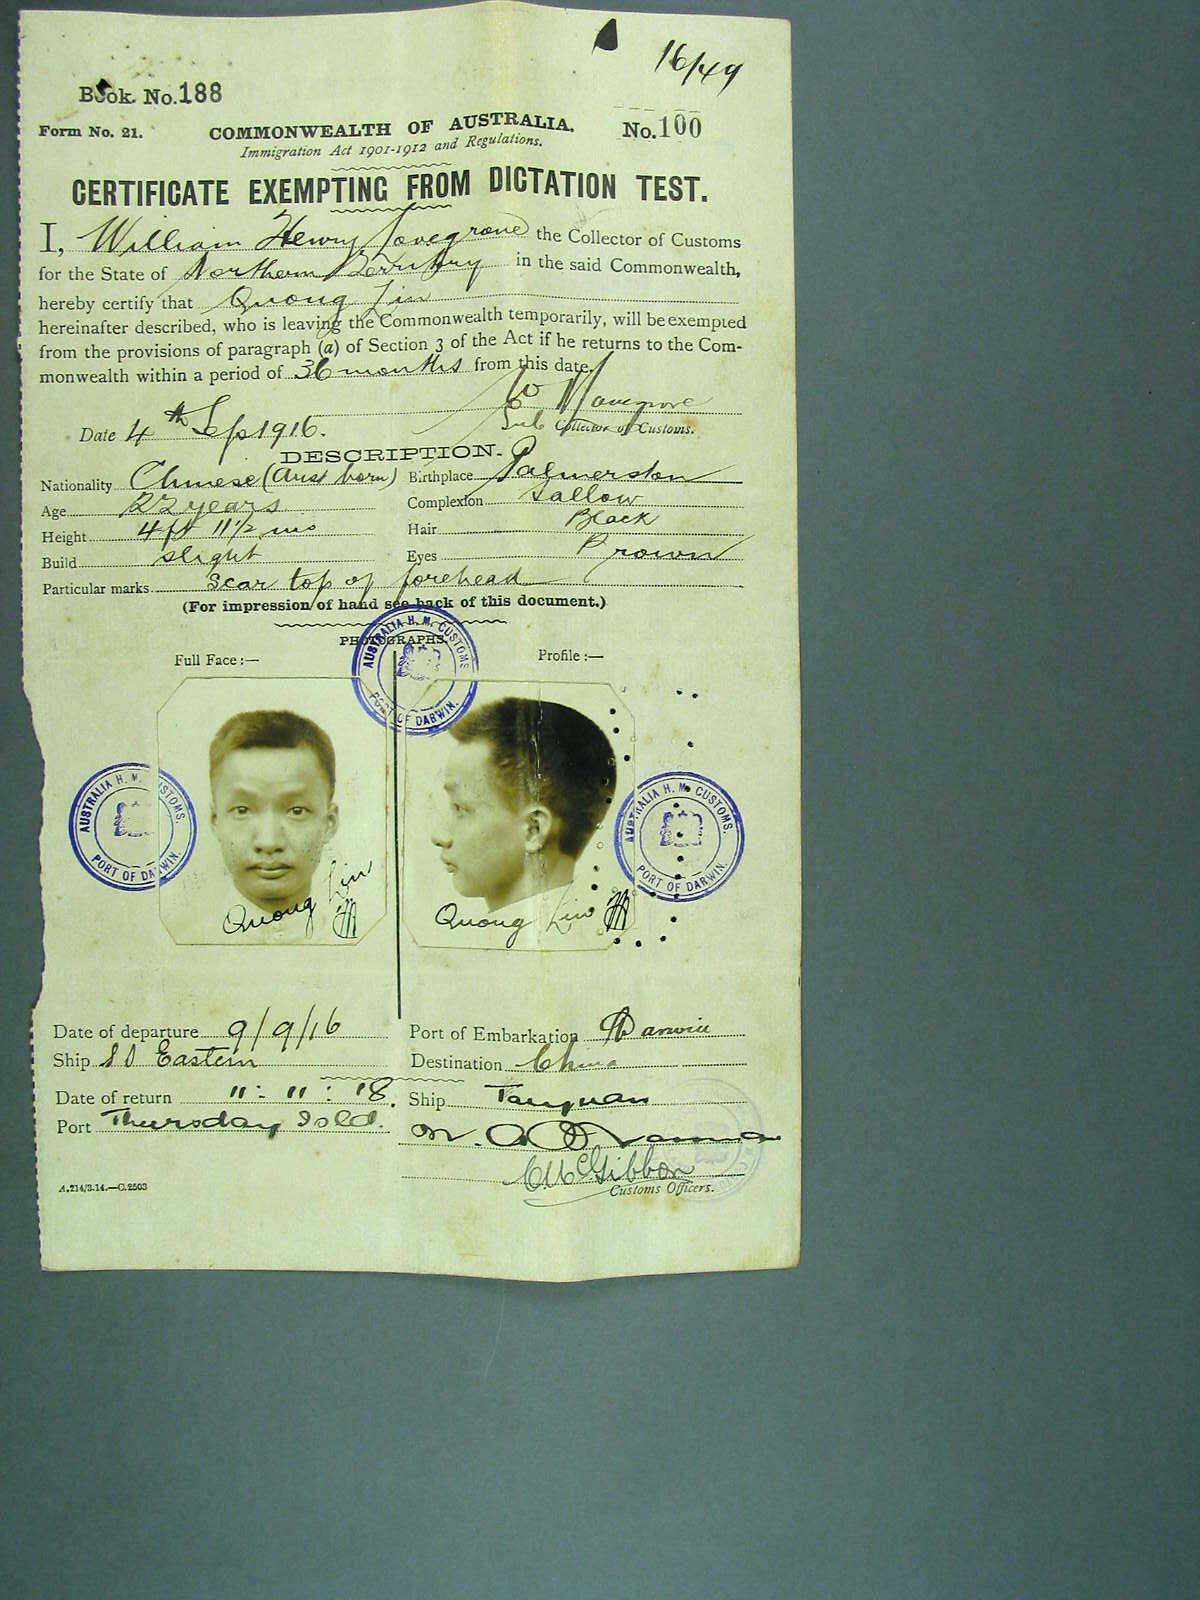 16/49
Book No. 188
Form No. 21.
COMMONWEALTH OF AUSTRALIA.
No. 100
Immigration Act 1901-1912 and Regulations.
CERTIFICATE EXEMPTING FROM DICTATION TEST.
I, William Henry Lovegrove the Collector of Customs
for the State of Northern Territory in the said Commonwealth,
hereby certify that Quong Lin
hereinafter described, who is leaving the Commonwealth temporarily, will be exempted
from the provisions of paragraph (a) of Section 3 of the Act if he returns to the Com-
monwealth within a period of 36 months from this date.
W H Lovegrove
Date 4th Sep 1916.
Sub Collector of Customs.
DESCRIPTION.
Nationality Chinese (Aust born) Birthplace Palmerston
Age 22 years Complexion Sallow
Height 4 ft 11 1/2 ins Hair Black
Build slight Eyes Brown
Particular marks scar top of forehead
(For impression of hand see back of this document.)
PHOTOGRAPHS.
Full Face :— Profile :—
AUSTRALIA H. M. CUSTOMS
PORT OF DARWIN.
AUSTRALIA H. M. CUSTOMS.
PORT OF DARWIN.
AUSTRALIA H. M. CUSTOMS.
PORT OF DARWIN.
Quong Lin
Quong Lin
Date of departure 9/9/16 Port of Embarkation Darwin
Ship SS Eastern Destination China
Date of return 11 : 11 : 18. Ship Taiyuan
Port Thursday Isld.
C McGibbon
Customs Officers.
A.214/3.14.—C.2503